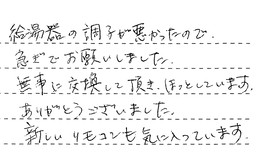 給湯器の調子が悪かったので.
急ぎでお願いしました.
無事に交換して頂き、ほっとしています.
ありがとうございました.
新しいリモコンも気に入っています.